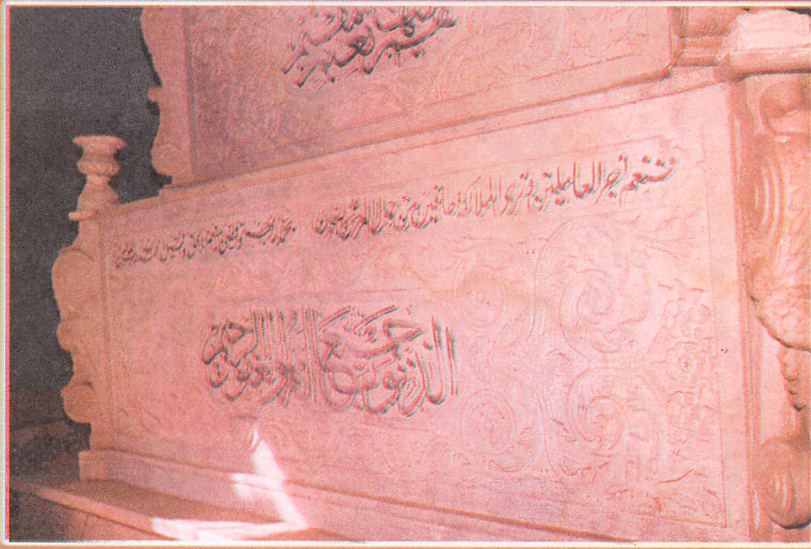 فنعم أجر العاملين وترى الملائكة حافين من حول العرش يسبحون بحمد ربهم وقضي بينهم بالحق وقيل الحمد لله رب
الذنوب جميعا انه هو الغفور الرحيم